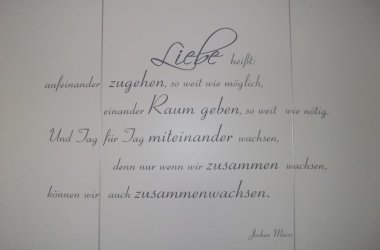 Liebe heißt:
aufeinander zugehen, so weit wie möglich,
einander Raum geben, so weit wie nötig.
Und Tag für Tag miteinander wachsen,
denn nur wenn wir zusammen wachsen,
können wir auch zusammenwachsen.
Jochen